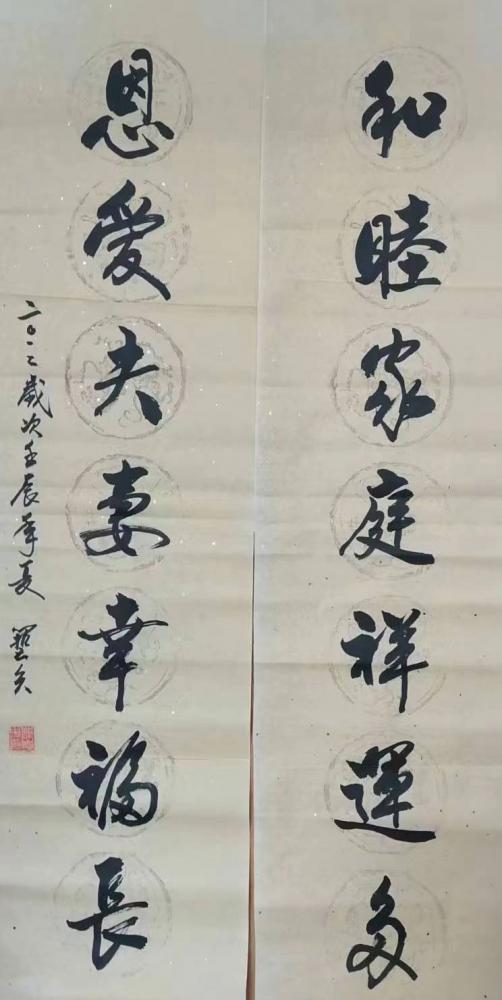 和睦家庭祥運多
恩愛夫妻幸福長
二〇一二歲次壬辰年夏